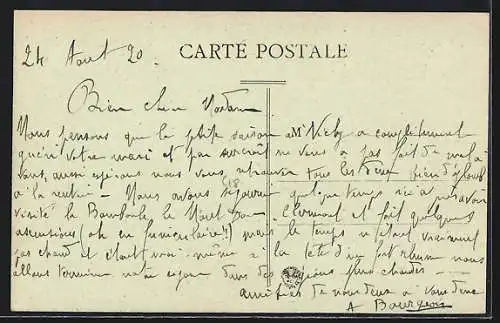 24 Aout 20.
CARTE POSTALE
Bien chère Madame
Nous pensons que la petite saison à Vichy a complètement
guéri votre mari et par surcroît ne vous a pas fait de mal à
vous, aussi espérons nous vous retrouver tous les deux bien
à la rentrée — Nous avons séjourné quelque temps ici après avoir
visité la Bourboule, le Mont Dore, Clermont et fait quelques
ascensions (oh en funiculaire!!) mais le temps n'était vraiment
pas chaud et c'est moi-même à la tête d'un fort rhume nous
allons terminer notre séjour dans des régions plus chaudes —
amitiés de nous deux à vous deux
A Bourgeois